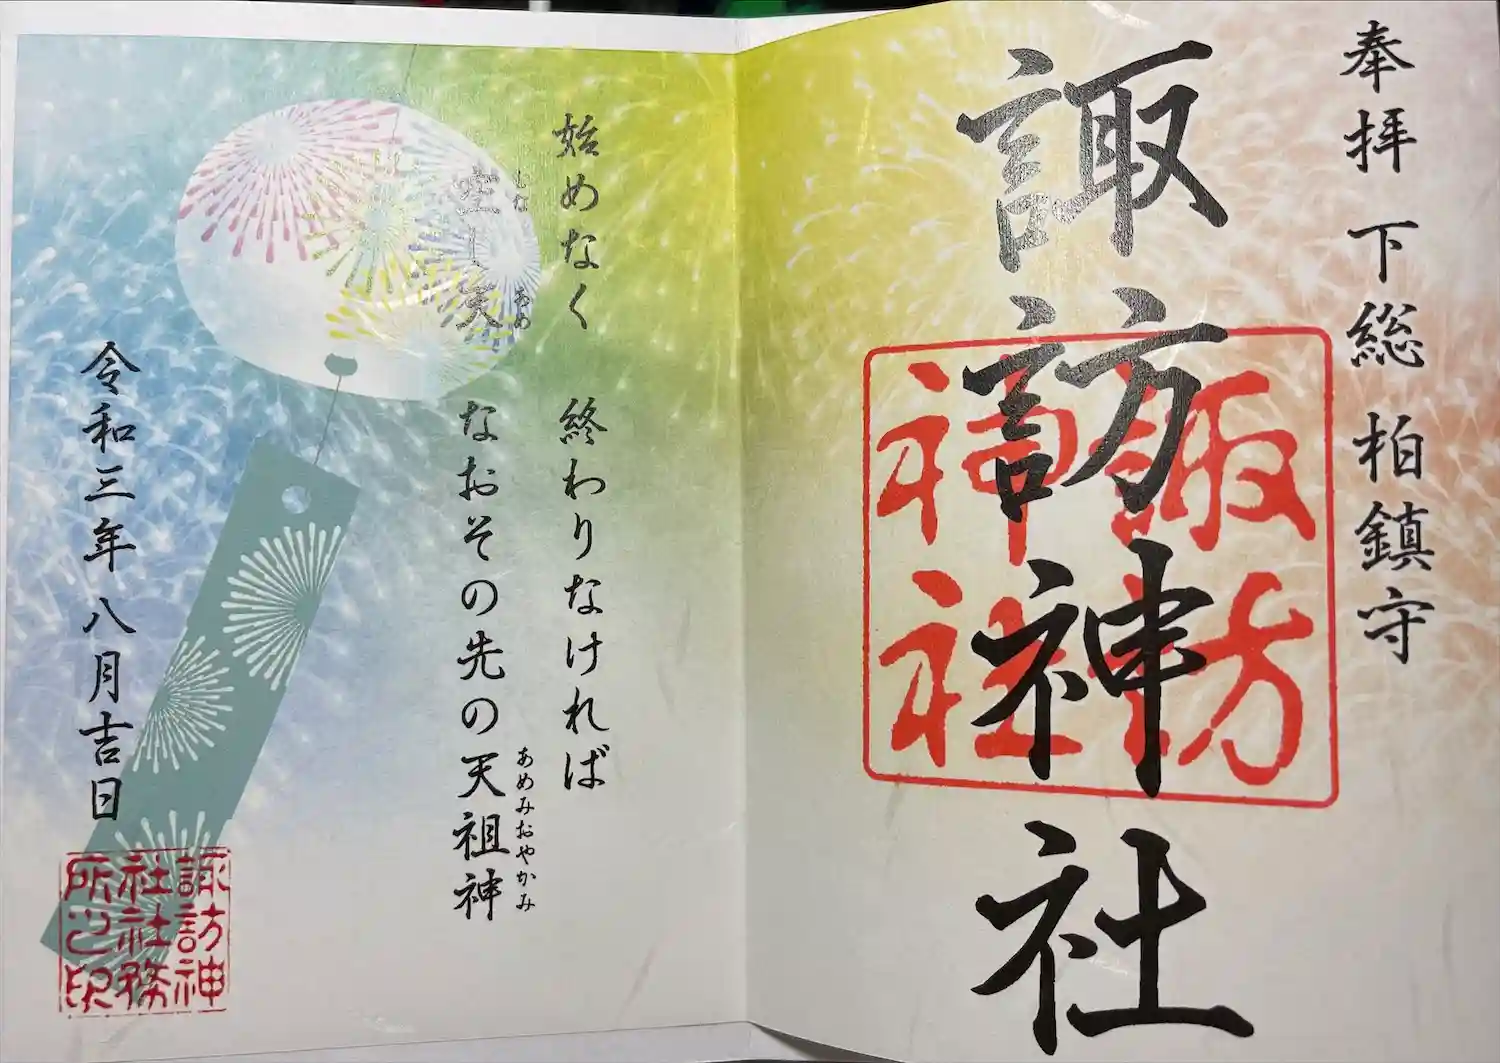 奉拝 下総 柏鎮守
諏訪神社
諏訪
神社
始めなく 終わりなければ
し天 なおその先の天祖神
しな
あめ
あめみおやかみ
令和三年 八月吉日
諏訪神
社社務
所之印